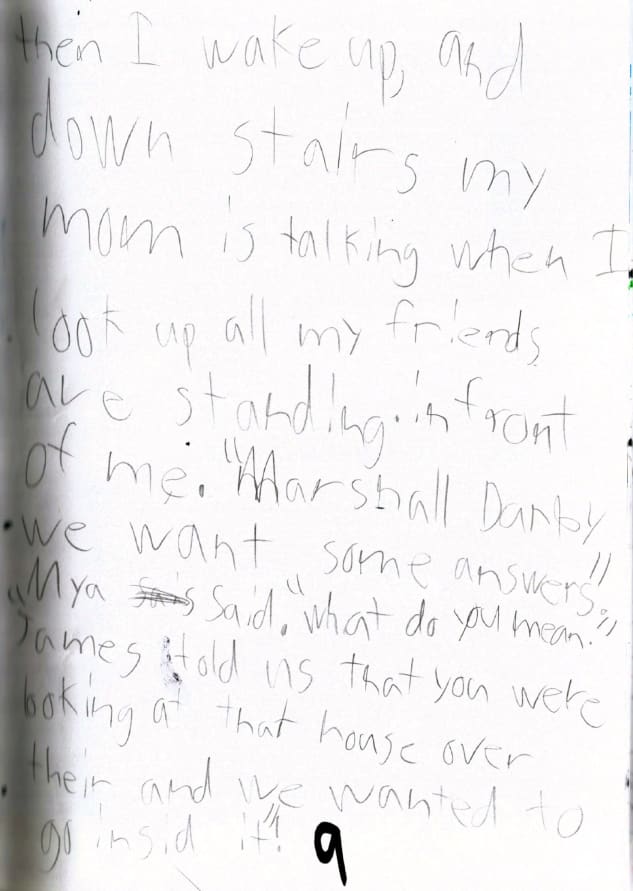 then I wake up, and
down stairs my
mom is talking when I
look up all my friends
are standing. in front
of me. "Marshall Danby
we want some answers."
"Mya said." what do you mean."
James told us that you were
looking at that house over
their and we wanted to
go insid it"!
9